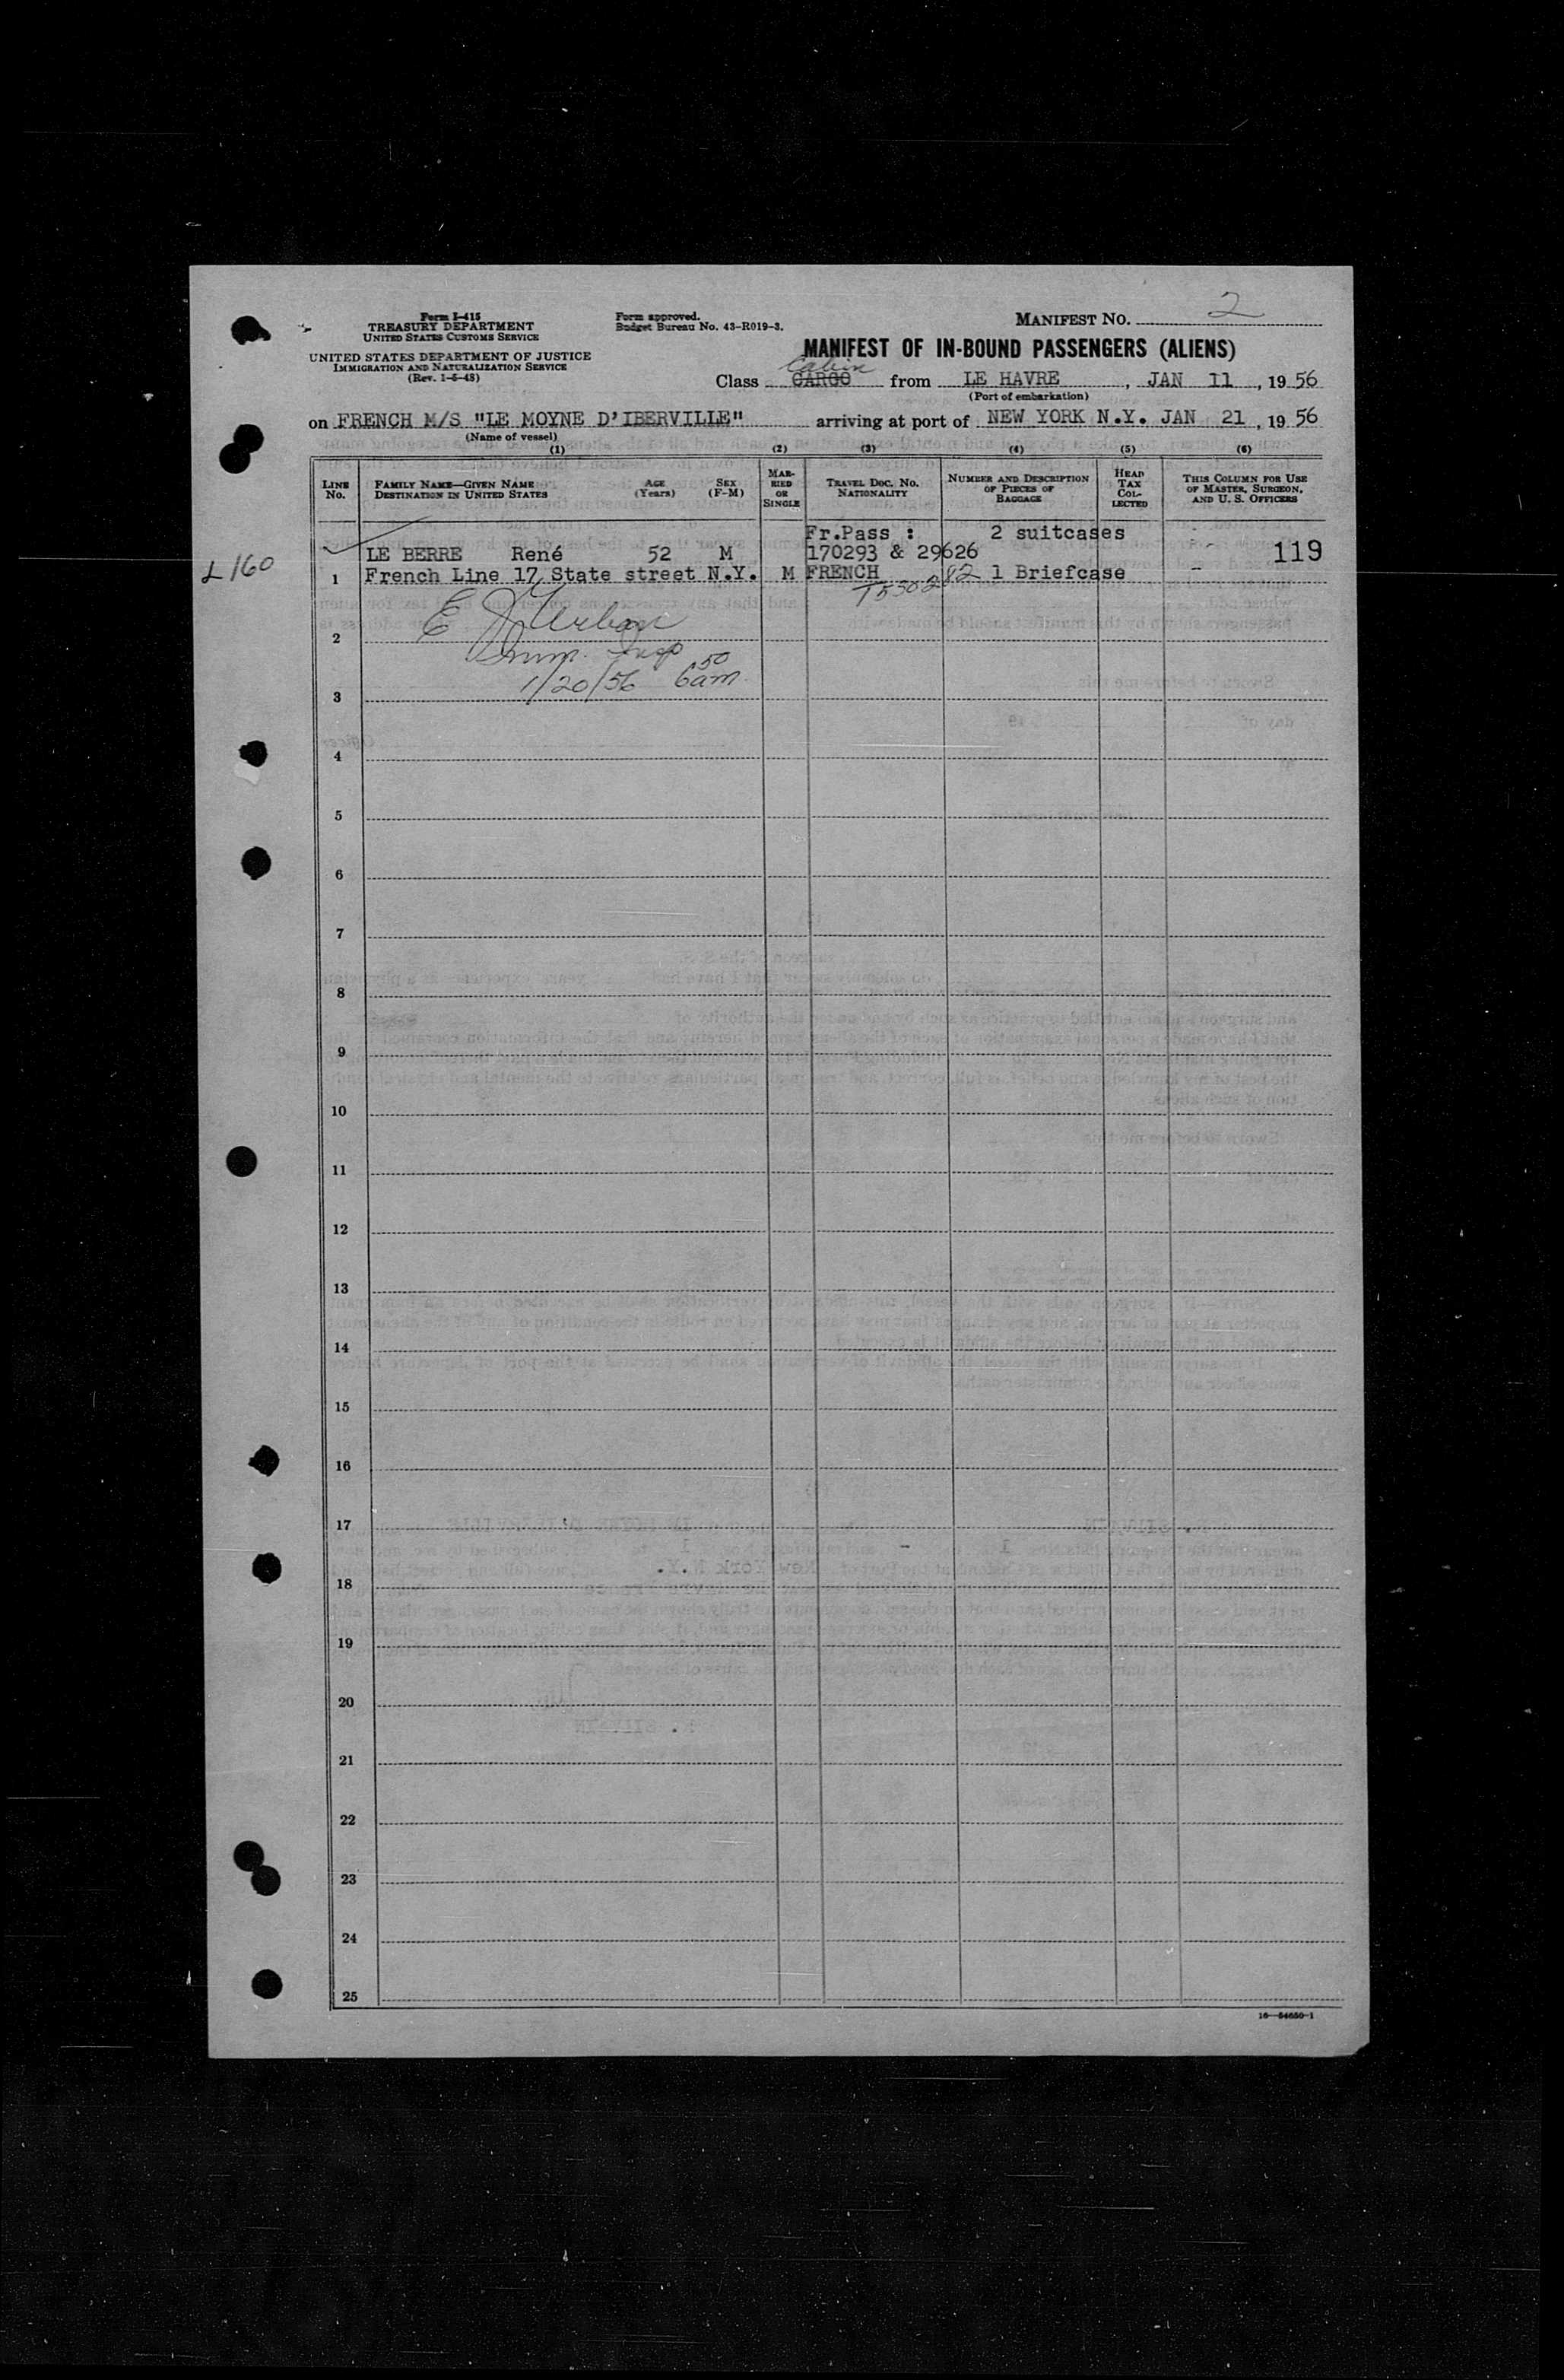 Form I-415
TREASURY DEPARTMENT
UNITED STATES CUSTOMS SERVICE
UNITED STATES DEPARTMENT OF JUSTICE
IMMIGRATION AND NATURALIZATION SERVICE
(Rev. 1-5-48)
Form approved.
Budget Bureau No. 43-R019-3.
MANIFEST NO. 2
MANIFEST OF IN-BOUND PASSENGERS (ALIENS)
Cabin
Class CARGO from LE HAVRE, JAN 11, 1956
(Port of embarkation)
on FRENCH M/S "LE MOYNE D'IBERVILLE" arriving at port of NEW YORK N.Y. JAN 21, 1956
(Name of vessel)
(1) (2) (3) (4) (5) (6)
LINE No.
FAMILY NAME—GIVEN NAME
DESTINATION IN UNITED STATES
AGE (Years)
SEX (F-M)
MARRIED OR SINGLE
TRAVEL DOC. NO. NATIONALITY
NUMBER AND DESCRIPTION OF PIECES OF BAGGAGE
HEAD TAX COLLECTED
THIS COLUMN FOR USE OF MASTER, SURGEON, AND U. S. OFFICERS
Fr.Pass : 2 suitcases -
LE BERRE René 52 M 170293 & 29626 - 119
L160
1 French Line 17 State street N.Y. M FRENCH 1 Briefcase -
2
Imm. Insp
1/20/56 6 50 am
3
4
5
6
7
8
9
10
11
12
13
14
15
16
17
18
19
20
21
22
23
24
25
16—54650-1